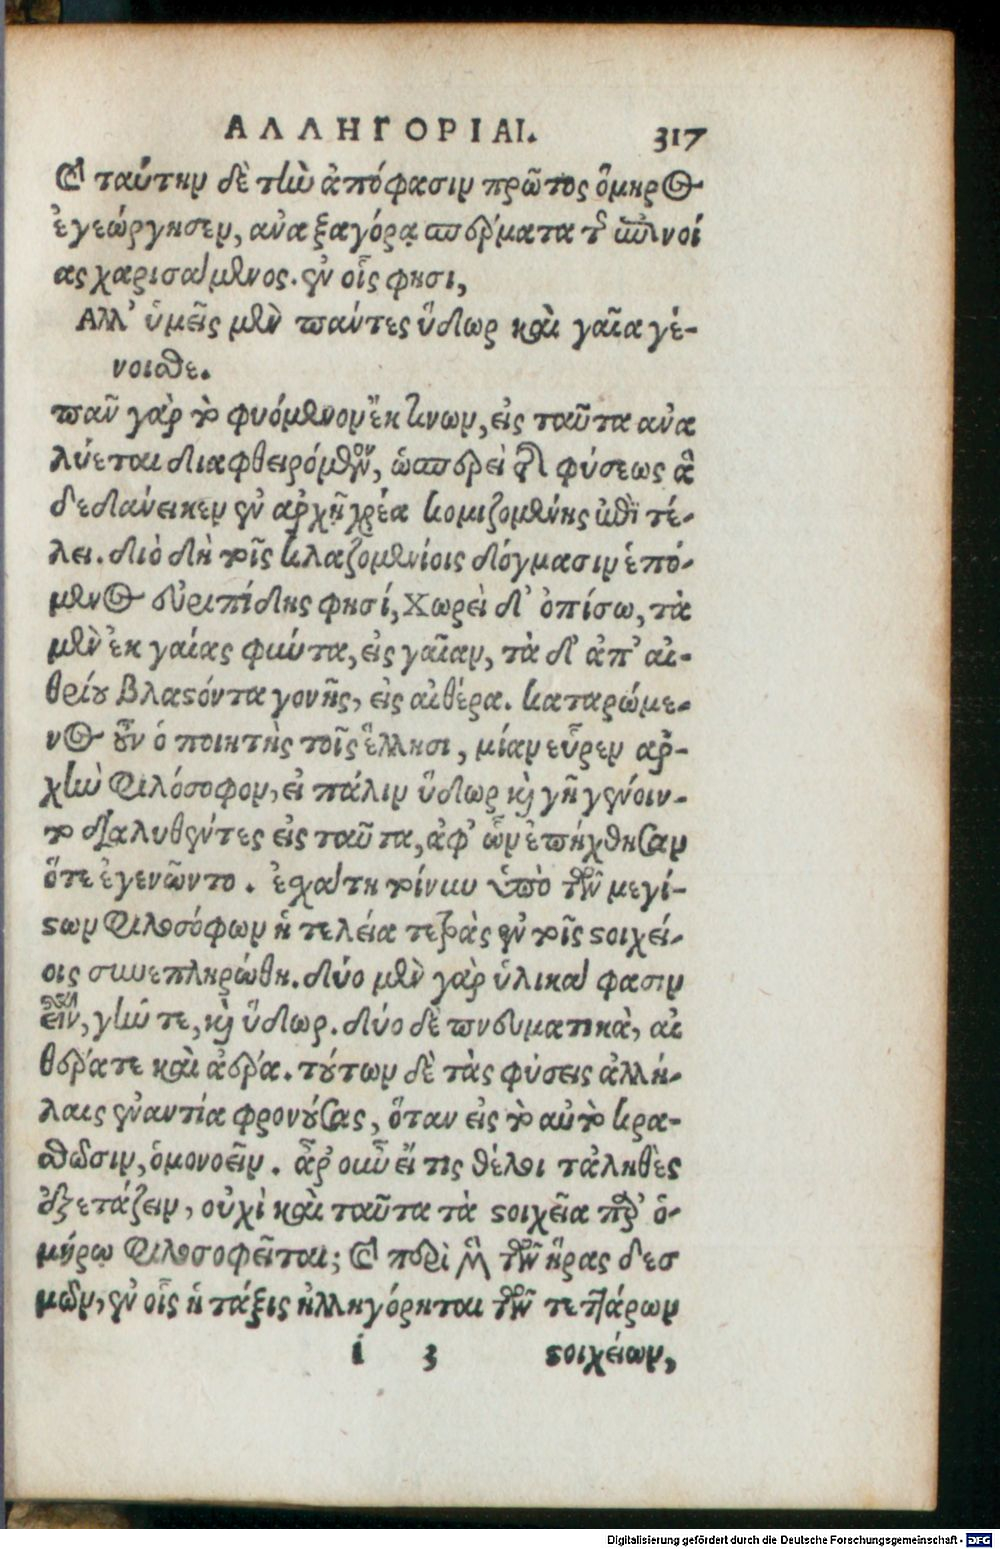 ΑΛΛΗΓΟΡΙΑΙ. 317
καὶ ταύτην δὲ τὴν ἀπόφασιν πρῶτος ὅμηρος
ἐγεώργησεν, ἀναξαγόρᾳ σπέρματα τῆς ἐπινοί
ας χαρισάμενος. ἐν οἷς φησι,
Ἀλλ' ὑμεῖς μὲν πάντες ὕδωρ καὶ γαῖα γέ-
νοισθε.
πᾶν γὰρ τὸ φυόμενον ἔκ τινων, εἰς ταῦτα ἀνα
λύεται διαφθειρόμενον, ὡσπερεὶ τῆς φύσεως ἃ
δεδάνεικεν ἐν ἀρχῇ χρέα κομιζομένης ἐπὶ τέ-
λει. διὸ δὴ τοῖς κλαζομενίοις δόγμασιν ἑπό-
μενος εὐριπίδης φησί, Χωρεῖ δ' ὀπίσω, τὰ
μὲν ἐκ γαίας φύντα, εἰς γαῖαν, τὰ δ' ἀπ' αἰ-
θρίου βλαστόντα γονῆς, εἰς αἰθέρα. καταρώμε-
νος οὖν ὁ ποιητὴς τοῖς ἕλλησι, μίαν εὗρεν ἀρ-
χὴν φιλόσοφον, εἰ πάλιν ὕδωρ καὶ γῆ γένοιν-
το διαλυθέντες εἰς ταῦτα, ἀφ' ὧν ἐπήχθησαν
ὅτε ἐγενῶντο. ἐσχάτη τοίνυν ὑπὸ τῶν μεγί-
στων φιλοσόφων ἡ τελεία τετρὰς ἐν τοῖς στοιχεί-
οις συνεπληρώθη. δύο μὲν γὰρ ὑλικά φασιν
εἶναι, γῆν τε, καὶ ὕδωρ. δύο δὲ πνευματικὰ, αἰ
θέρα τε καὶ ἀέρα. τούτων δὲ τὰς φύσεις ἀλλή-
λαις ἐναντία φρονούσας, ὅταν εἰς τὸ αὐτὸ κρα-
θῶσιν, ὁμονοεῖν. ἆρ' οὖν εἴ τις θέλοι τἀληθὲς
ἐξετάζειν, οὐχὶ καὶ ταῦτα τὰ στοιχεῖα παρ' ὁ-
μήρῳ φιλοσοφεῖται; καὶ περὶ μὲν τῶν ἥρας δεσ
μῶν, ἐν οἷς ἡ τάξις ἠλληγόρηται τῶν τεττάρων
i 3 στοιχείων,
Digitalisierung gefördert durch die Deutsche Forschungsgemeinschaft - DFG